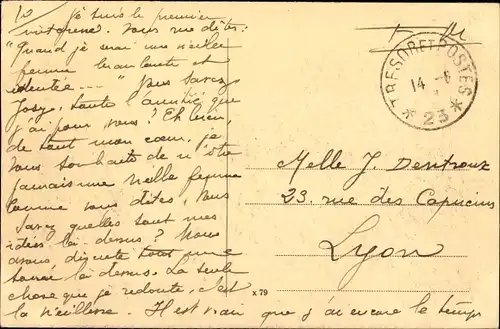 Je suis le premier
vous me dites:
"Quand je serai une vieille
femme branlante et
édentée...." Vous savez,
Josy, toute l'amitié que
j'ai pour vous? Eh bien,
de tout mon cœur, je
vous souhaite de n'être
jamais une vieille femme
comme vous dites. Vous
savez quelles sont mes
idées là-dessus? Nous
avons discuté tout une
soirée là-dessus. La seule
chose que je redoute, c'est
la vieillesse. Il est vrai que j'ai encore le temps
TRESOR ET POSTES
14 - 6
* 23 *
Melle J. Desitroux
23, rue des Capucins
Lyon
x 79